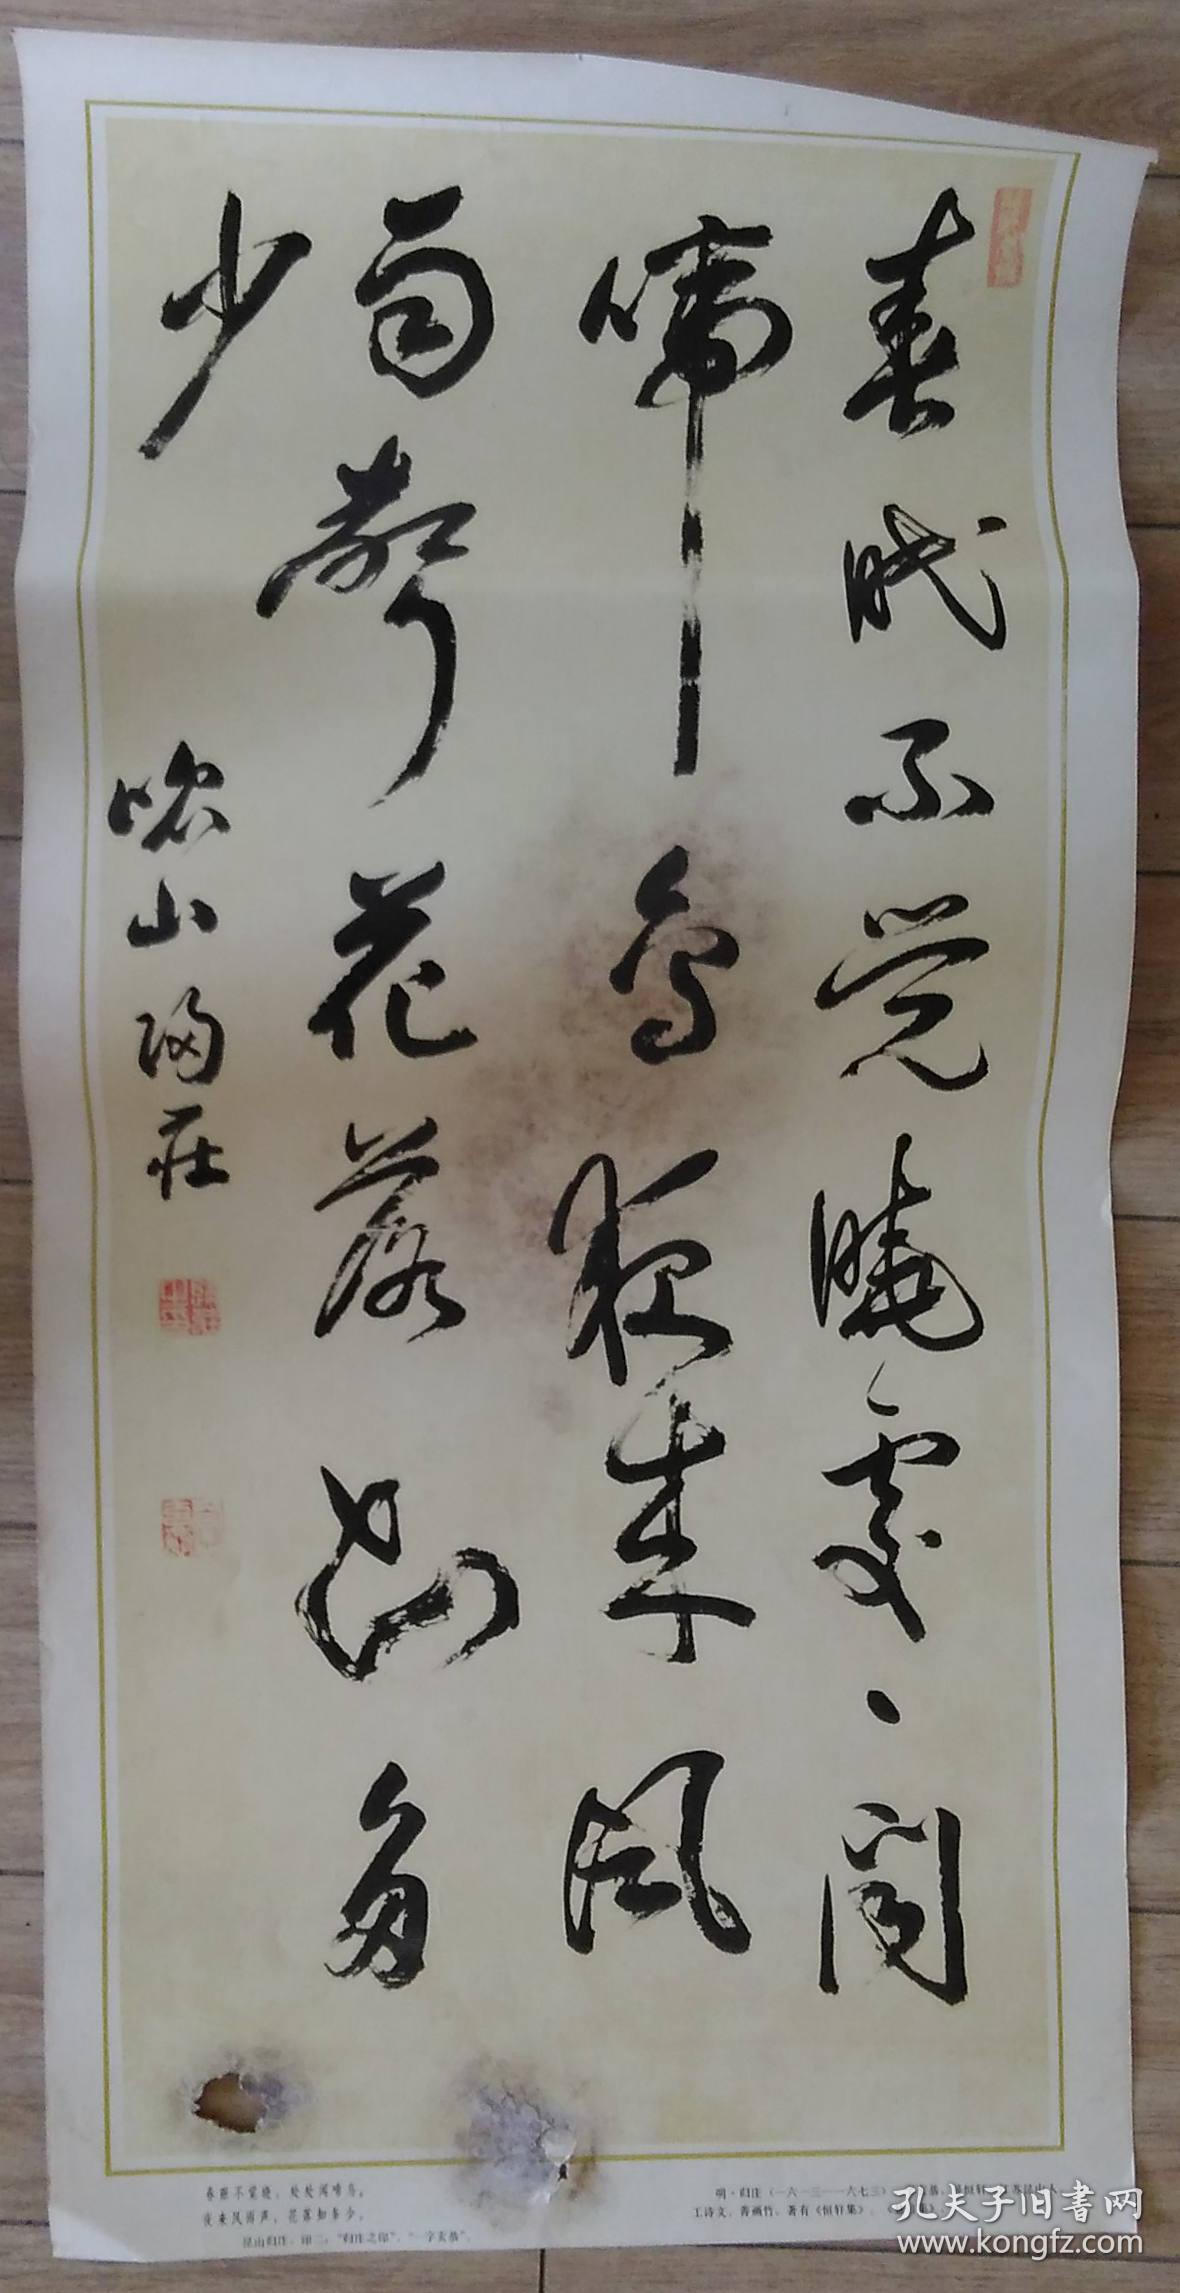 春眠不觉晓处、闻
啼鸟夜来风
雨声花落知多
少
崑山归庄
春眠不觉晓，处处闻啼鸟。
夜来风雨声，花落知多少。
昆山归庄。印二：“归庄之印”、“一字玄恭”。
明·归庄（一六一三—一六七三）
工诗文，善画竹，著有《恒轩集》、
孔夫子旧书网
www.kongfz.com